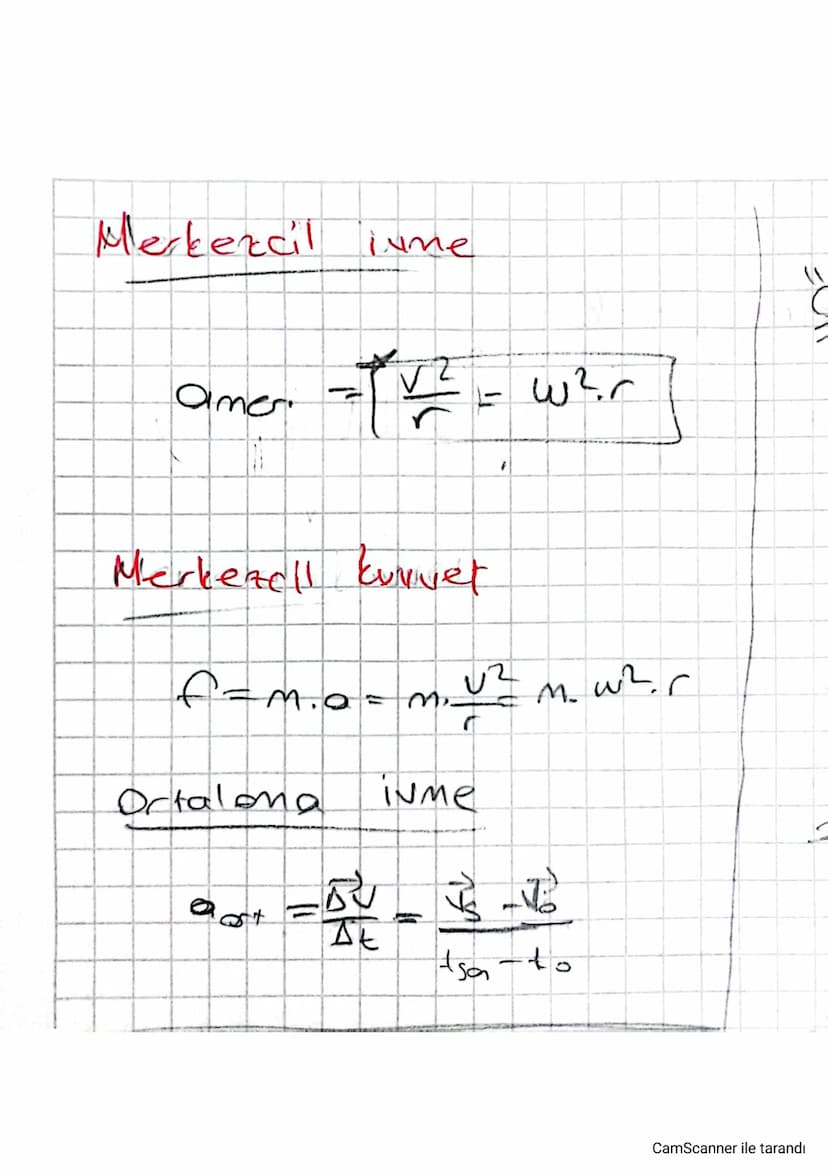 Merkezcil ivme
amer. = v²/r = w².r
Merkezcil kuvvet
f = m.a = m.v²/r = m. w².r
Ortalama ivme
a ort = Δv⃗/Δt = v⃗s - v⃗o / tson - to
CamScanner ile tarandı